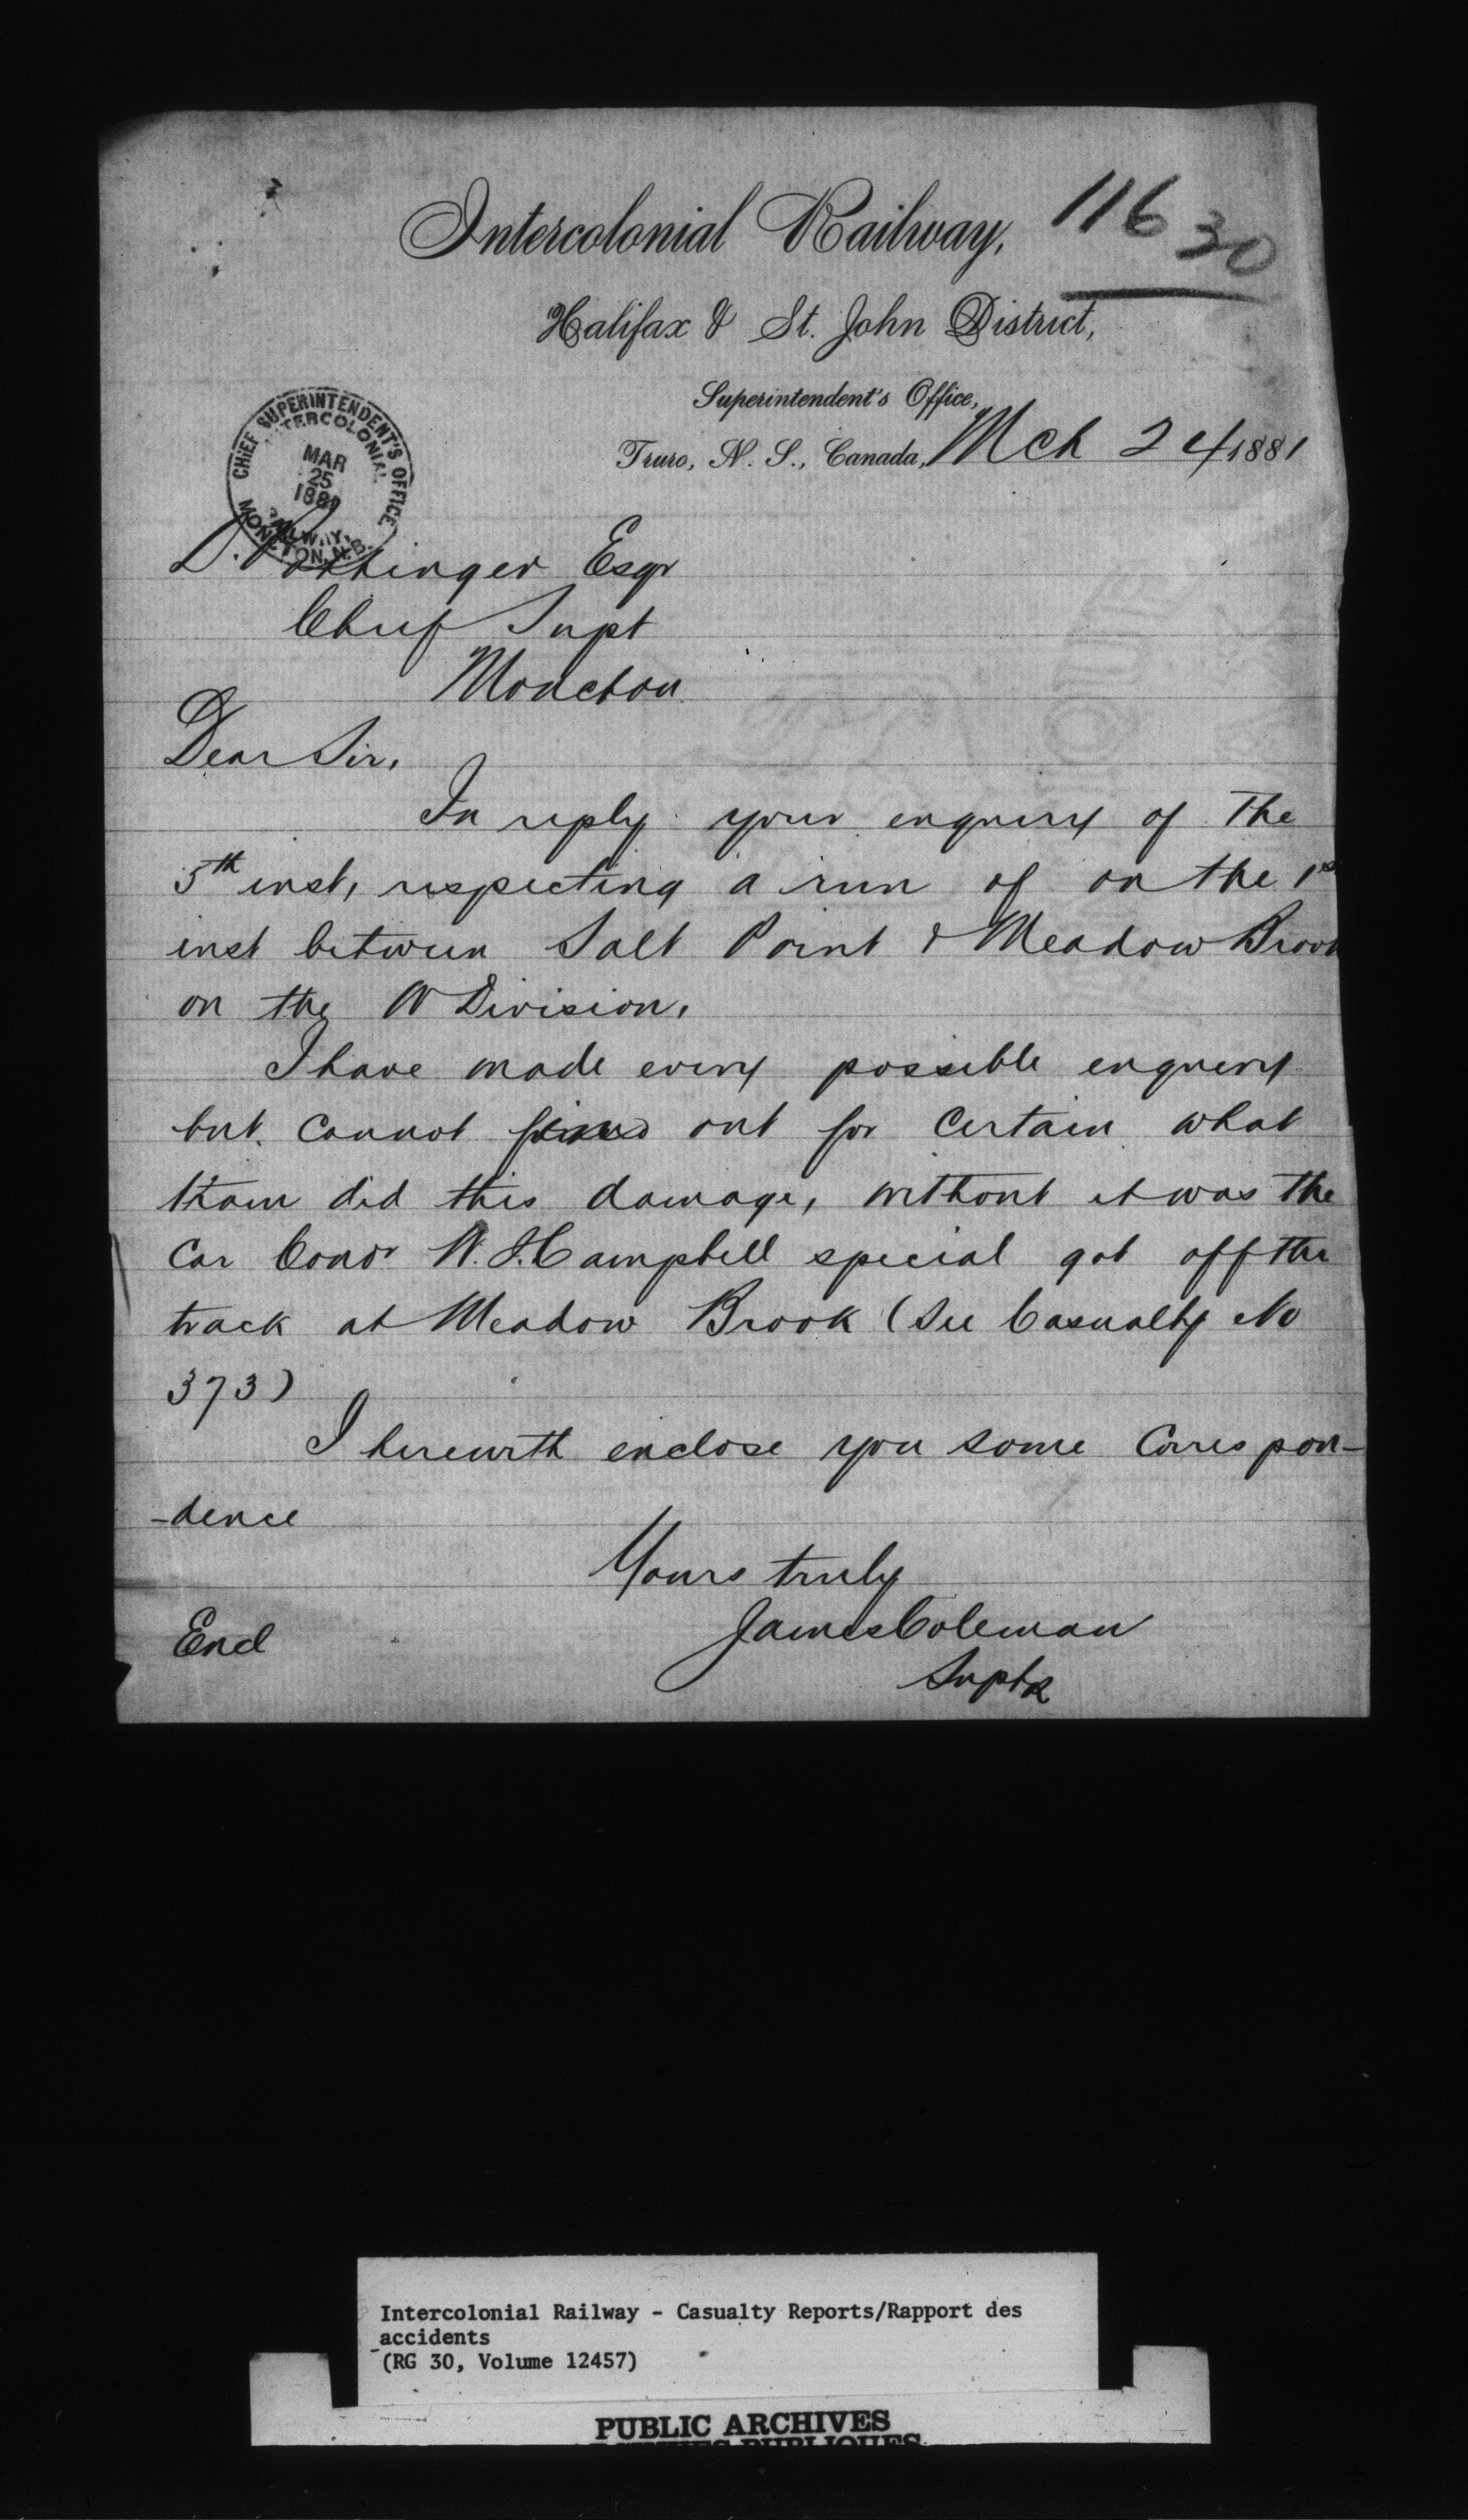 11630
Intercolonial Railway,
Halifax & St. John District,
Superintendent's Office,
Truro, N. S., Canada, Mch 24 1881
CHIEF SUPERINTENDENT'S OFFICE
INTERCOLONIAL
MAR
25
1881
RAILWAY,
MONCTON, N.B.
D. Pottinger Esqr
Chief Supt
Moncton
Dear Sir,
In reply your enquiry of The
5th inst, respecting a run of on the 1st
inst between Salt Point & Meadow Brook
on the W Division.
I have made every possible enquiry
but cannot find out for certain what
train did this damage, without it was the
Car Condr W. J. Campbell special got off the
track at Meadow Brook (See Casualty No
373)
I herewith enclose you some Correspon-
-dence
Yours truly
James Coleman
Supt
Encl
Intercolonial Railway - Casualty Reports/Rapport des
accidents
(RG 30, Volume 12457)
PUBLIC ARCHIVES
ARCHIVES PUBLIQUES